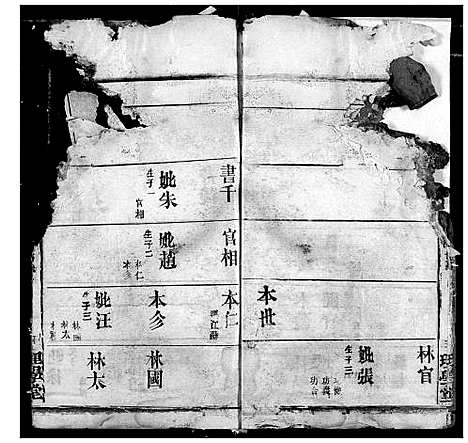 林官
妣張
生子三
功義
功
本世
書千
妣朱
生子一
官相
官相
妣趙
生子二
本仁
本
本仁
江
本
妣汪
生子三
林
林太
林
林國
林太